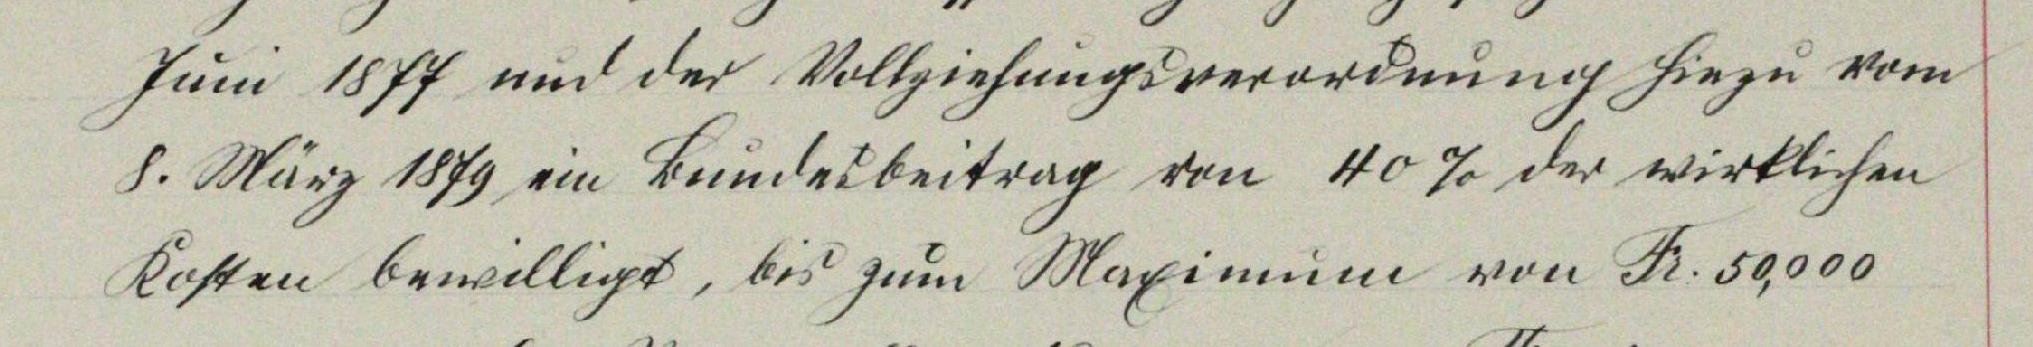 Juni 1877 und der Vollziehungsverordnung hiezu vom
8. März 1879 ein Bundesbeitrag von 40 % der wirklichen
Kosten bewilligt, bis zum Maximum von Fr. 50,000